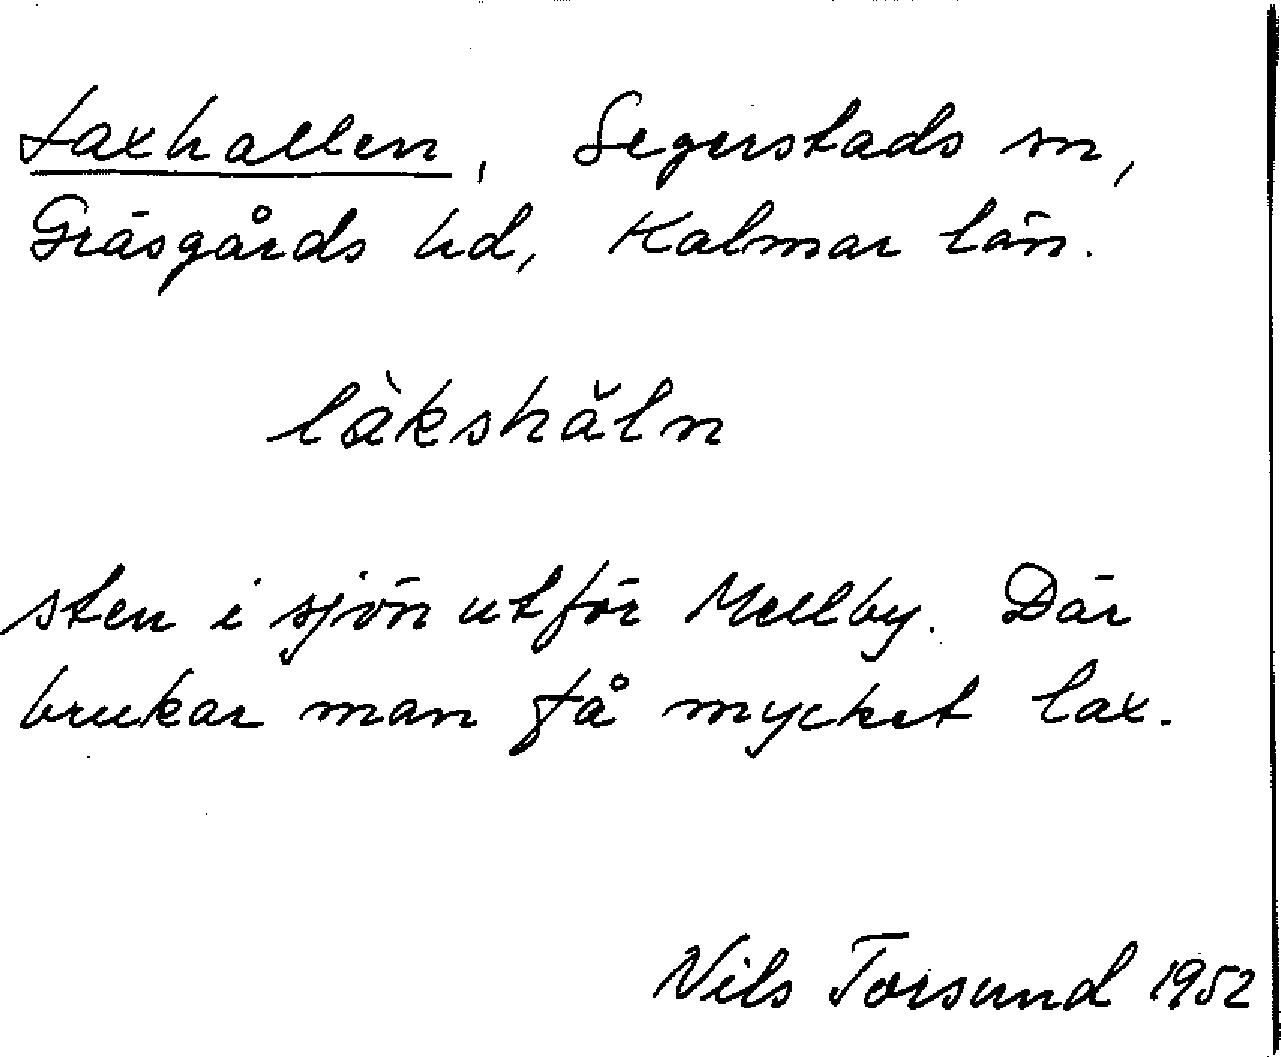 Laxhallen, Segerstads sn,
Gräsgårds hd, Kalmar län.
làkshăln
sten i sjön utför Mellby. Där
brukar man få mycket lax.
Nils Torsund 1952